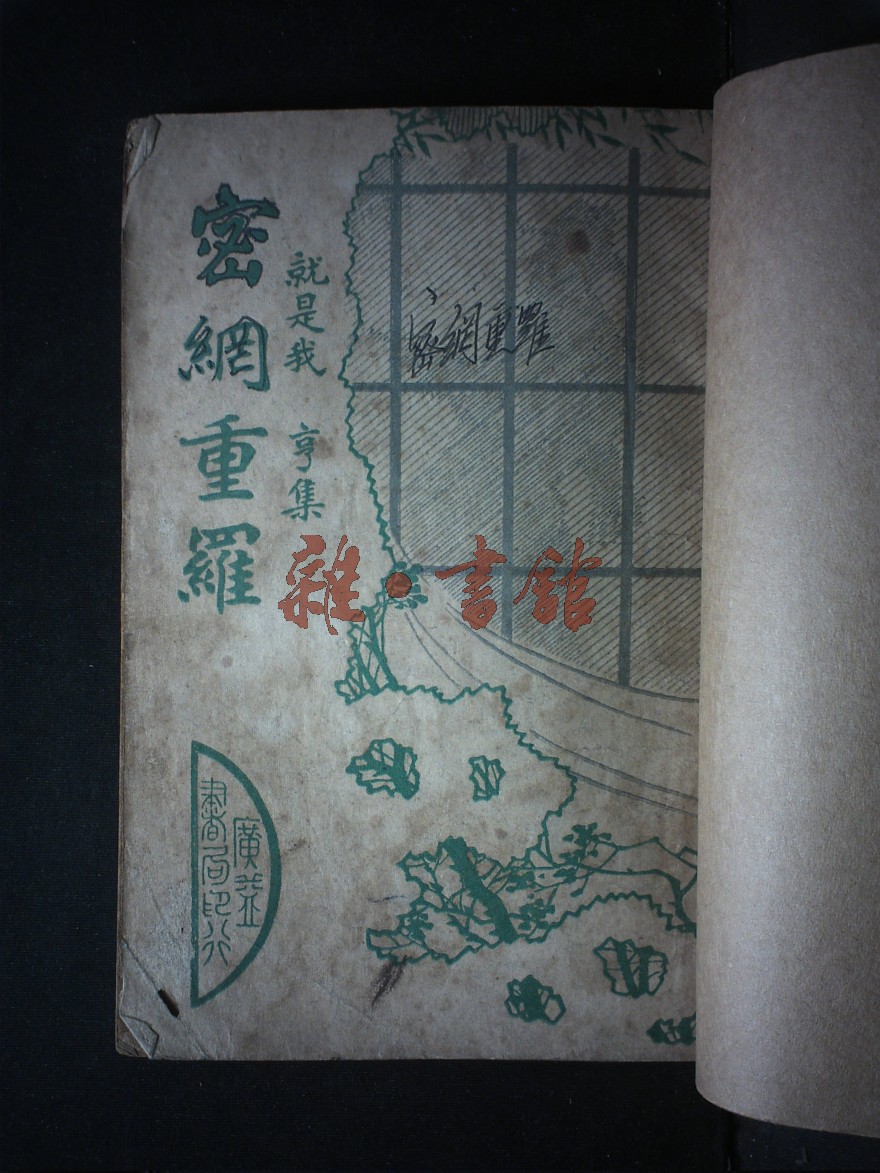 密網重羅
就是我 亨集
密網重羅
雜·書館
廣益
書局印行